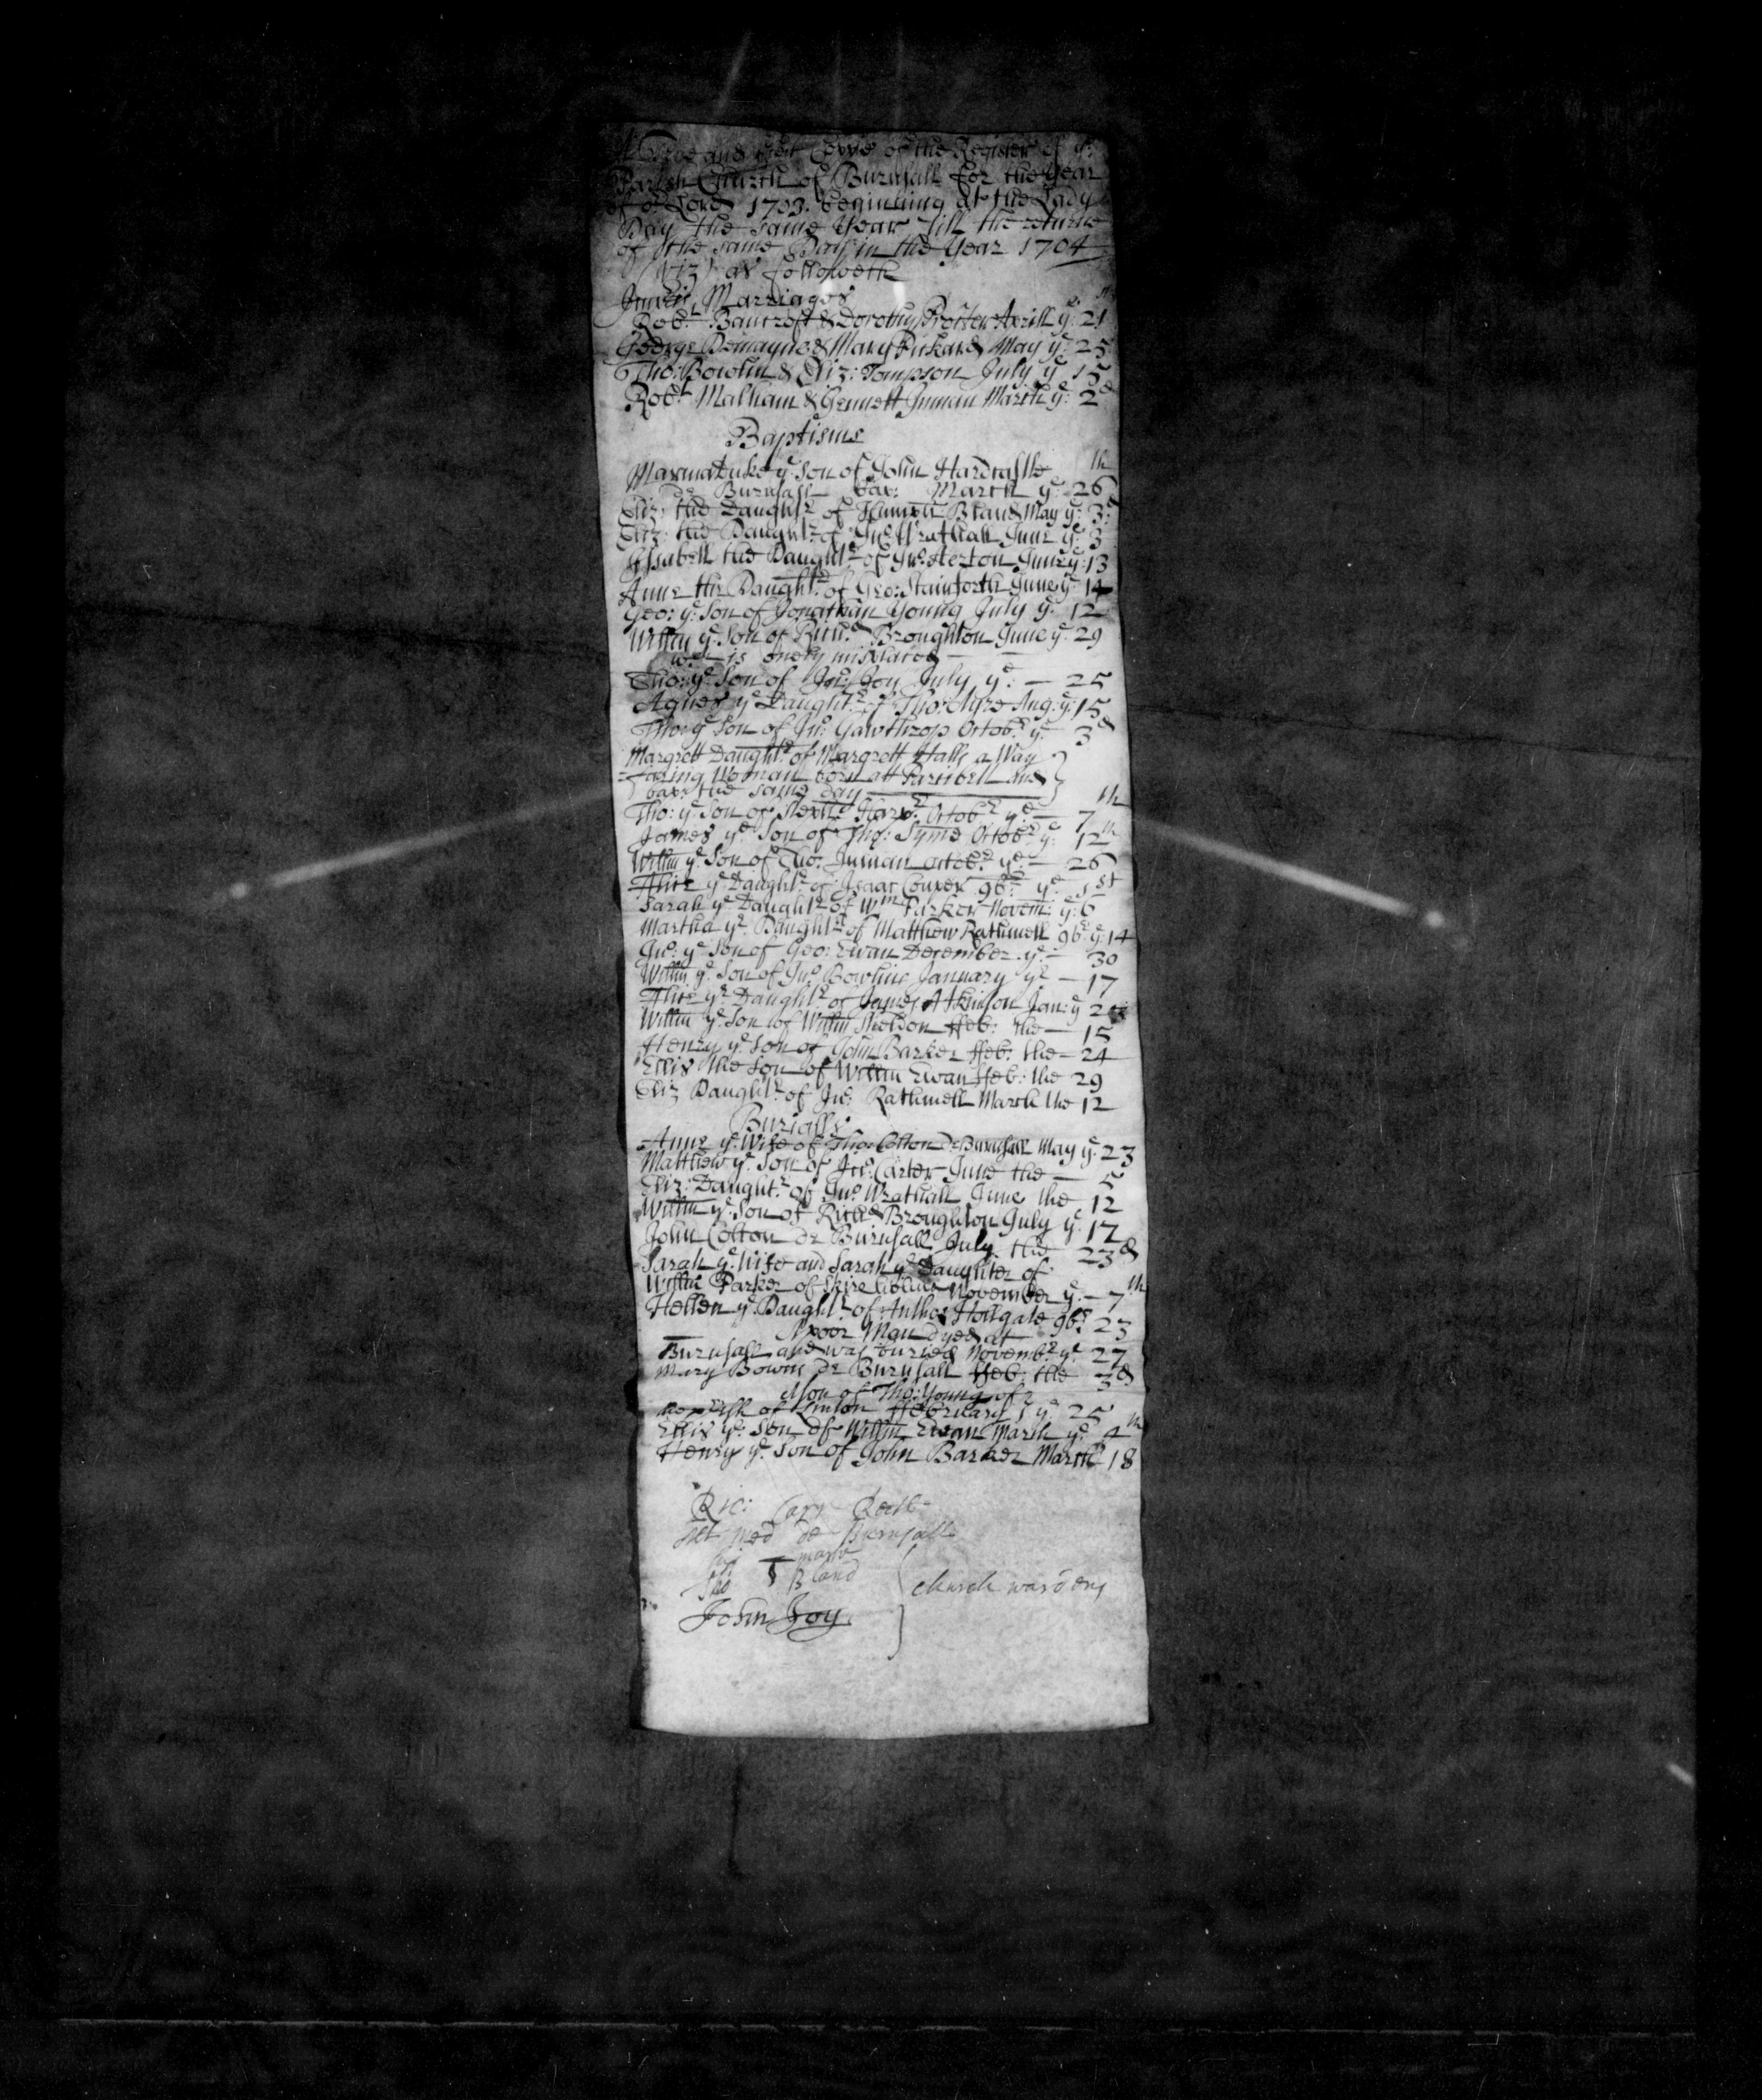 A True and perfect Coppie of the Register of ye
Parish Church of Burnsall for the Year
of or Lord 1703. beginning at the Lady
Day the same Year till the returne
of the same Day in the Year 1704
(viz) as followeth
Marriages
Robt: Bancroft & Dorothy Procter Aprill ye: 21st
George Demayne & Mary Pickard May ye 25
Tho: Bowlin & Eliz: Tompson July ye 15
Robt Malham & Gennett Inman March ye: 2d
Baptisms
Marmaduke ye Son of John Hardcastle
de Burnsall bap: March ye 26th
Eliz: the Daughtr of Bland May ye: 3d
Eliz: the Daughtr of Jno Wrathall June ye 3
Issabell the Daughtr of Jno: June ye: 13
Anne the Daughtr of Geo: Stainforth June ye 14
Geo: ye Son of Jonathan Young July ye 12
Willm ye Son of Richd Broughton June ye 29
wch is onely misplaced
Tho: ye Son of Jno: Joy July ye: — 25
Agnes ye Daughtr of Tho: Aug: ye: 15
Tho: ye Son of Jno: Gawthrop Octobr ye 3d
Margrett Daughtr of Margrett Halls a Way
=faring Woman born att and
bap: the same day
Tho: ye Son of Octobr ye — 7th
James ye Son of Tho: Syms Octobr ye: 12th
Willm ye Son of Tho: Inman Octobr ye — 26
Alice ye Daughtr of Isaac Couper 9br ye 1st
Sarah ye Daughtr of Wm Parker Novem: ye: 6
Martha ye Daughtr of Matthew Rathmell 9br ye: 14
Jno: ye Son of Geo: Ewan December ye — 30
Willm ye Son of Jno Bowline January ye — 17
Alice ye Daughtr of James Atkinson Jan: ye
Willm ye Son of Willm Sheldon ffeb: the — 15
Henry ye Son of John Barker ffeb: the — 24
Ellis the Son of Willm Ewan ffeb: the 29
Eliz Daughtr of Jno: Rathmell March the 12
Burialls
Anne ye Wife of Tho: Colton de Burnsall May ye 23
Matthew ye Son of Jno: Carter June the — 5
Eliz: Daughtr of Jno Wrathall June the 12
Willm ye Son of Richd Broughton July ye 17
John Colton de Burnsall July the 23d
Sarah ye Wife and Sarah ye Daughter of
Willm Parker of November ye — 7th
Hellen ye Daughtr of Antho: Holgate 9br 23
A poor Man dyed at
Burnsall and was buried Novembr ye 27
Mary Bowne de Burnsall ffeb: the 3d
A Son of Tho: Young of
of Linton ffebruary ye 25
Ellis ye Son of Willm Ewan March ye 4th
Henry ye Son of John Barker March 18
Ric: Cary Rectr
med de Burnsall
mark
Tho Bland
church wardens
John Joy